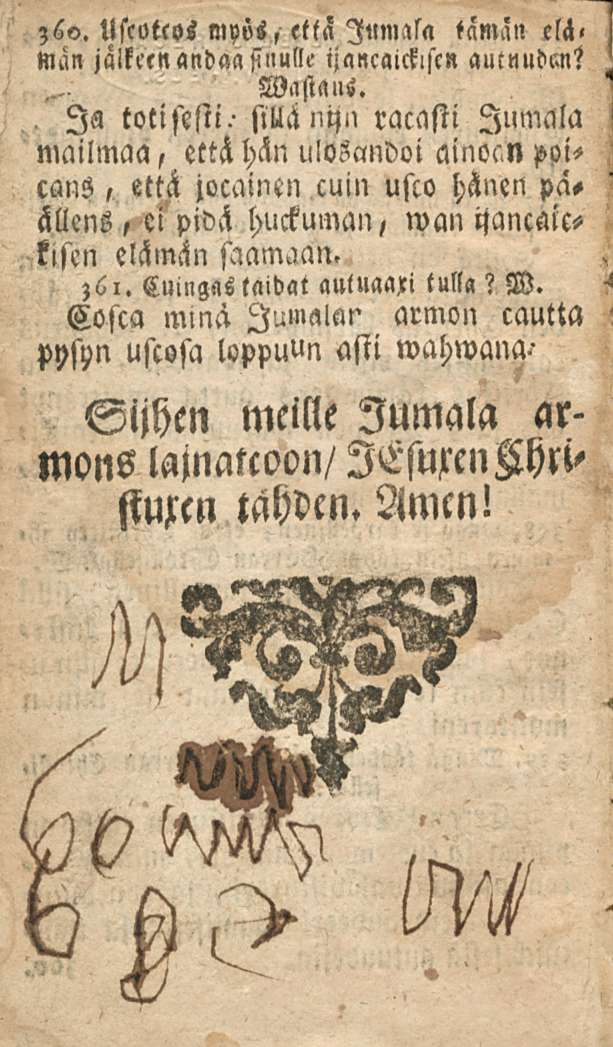 360. Uscotcos myös, että Jumala tämän elä-
män jälkeen andaa sinulle ijancaickisen autuuden?
Wastaus.
Ja totisesti: sillä nijn racasti Jumala
mailmaa, että hän ulosandoi ainoan poi-
cans, että jocainen cuin usco hänen pä-
ällens, ei pidä huckuman, wan ijancaic-
kisen elämän saamaan.
361. Cuingas taidat autuaaxi tulla? W.
Cosca minä Jumalan armon cautta
pysyn uscosa loppuun asti wahwana:
Sijhen meille Jumala ar-
mons lainatcoon/ JEsuxen Chri-
stuxen tähden. Amen!